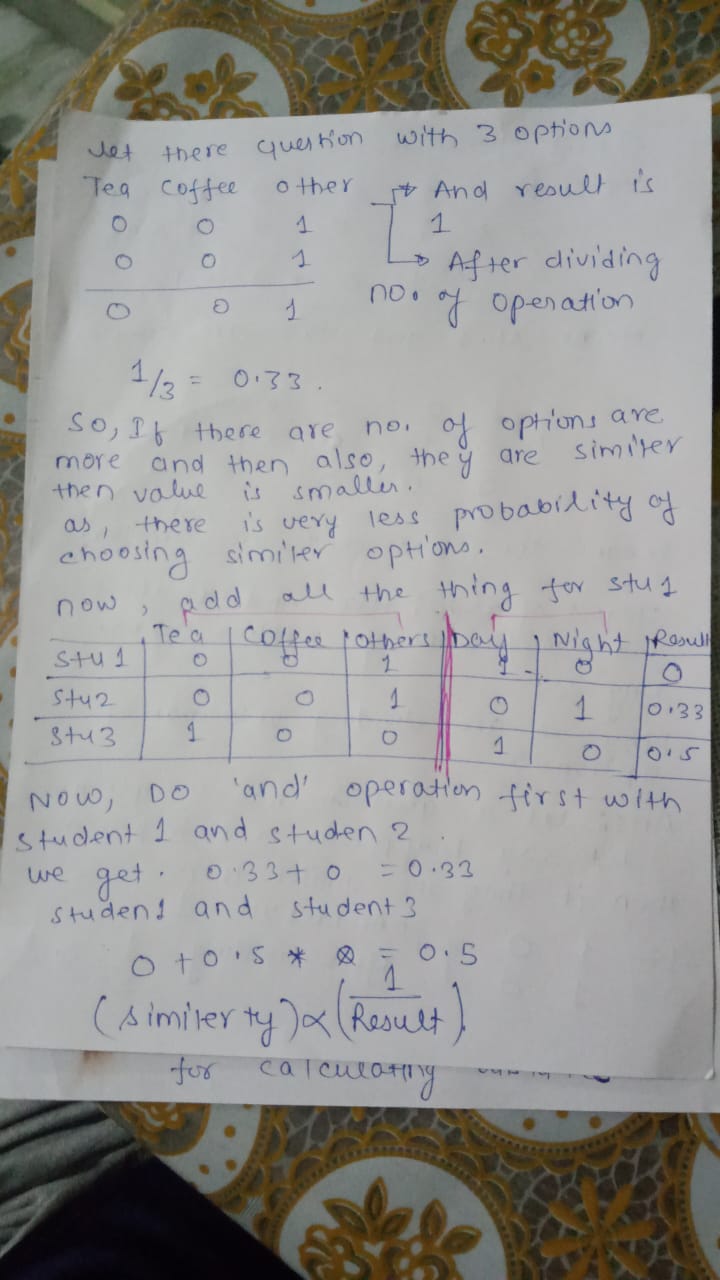 Let there question with 3 options
Tea Coffee other → And result is
0 0 1 1
0 0 1 → After dividing
0 0 1 no. of operation
1/3 = 0.33.
So, If there are no. of options are
more and then also, they are similer
then value is smaller.
as, there is very less probability of
choosing similer options.
now, add all the thing for stu 1
Tea Coffee others Day Night Result
Stu 1 0 0 1 1 0 0
Stu2 0 0 1 0 1 0.33
Stu3 1 0 0 1 0 0.5
NOW, DO 'and' operation first with
student 1 and studen 2.
we get. 0.33 + 0 = 0.33
studen1 and student 3
0 + 0.5 * = 0.5
(similerty) ∝ (1/Result)
for calculating